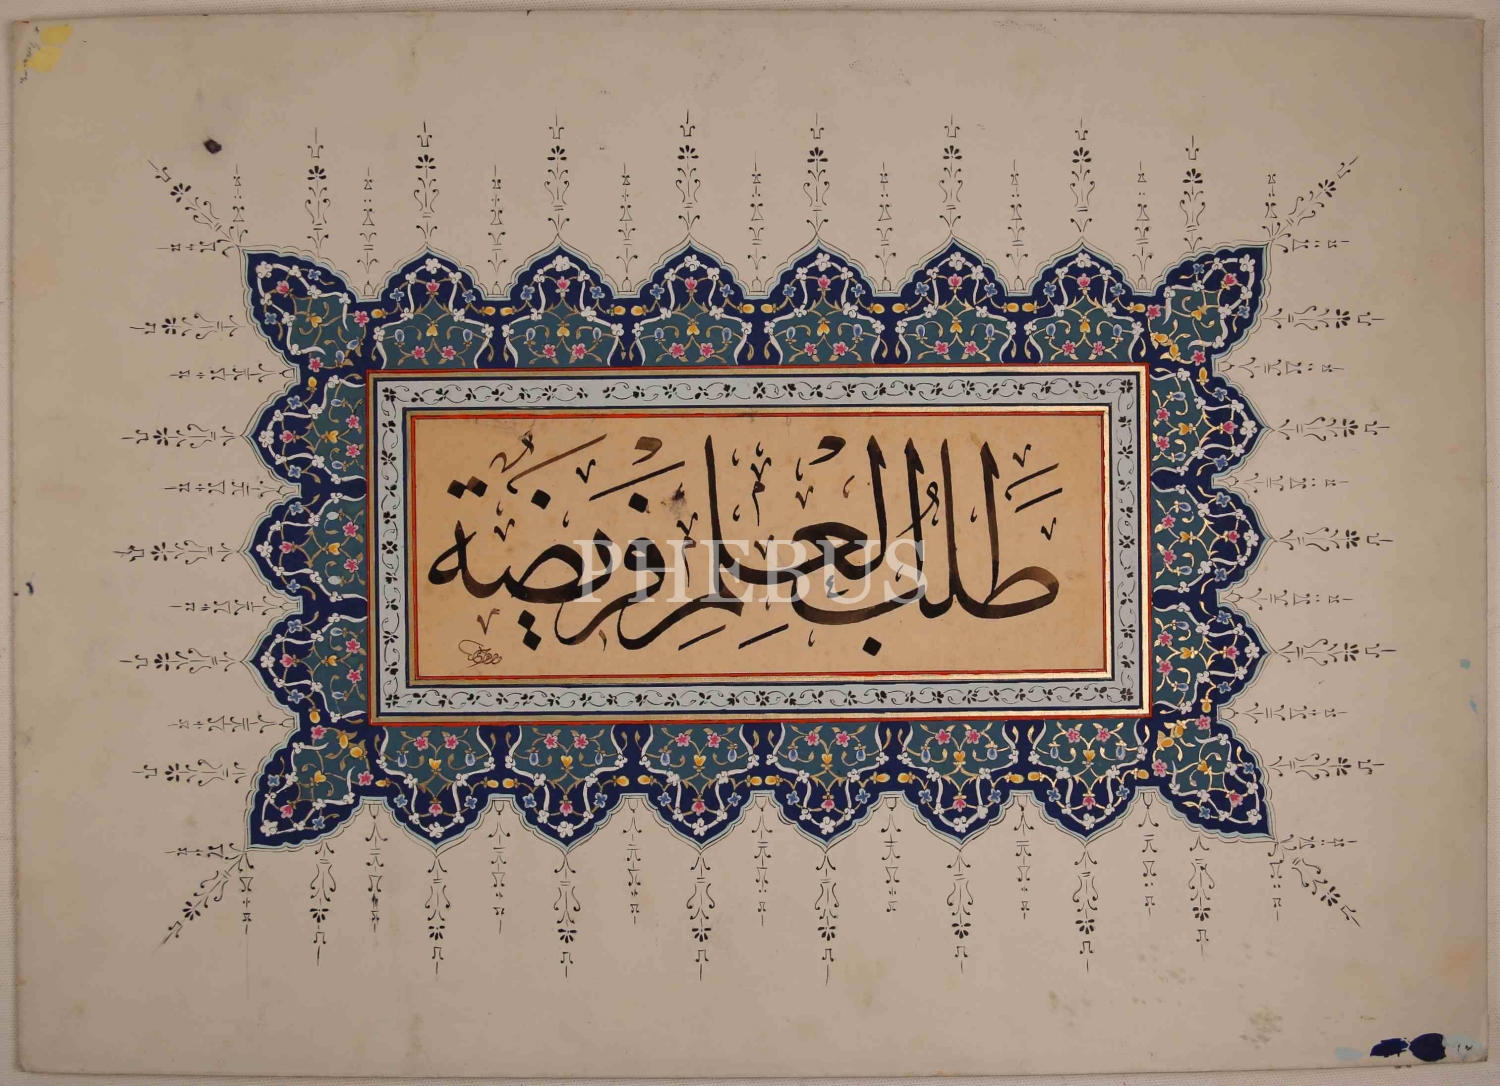 طَلَبُ الْعِلْمِ فَرِيضَةٌ
PHEBUS